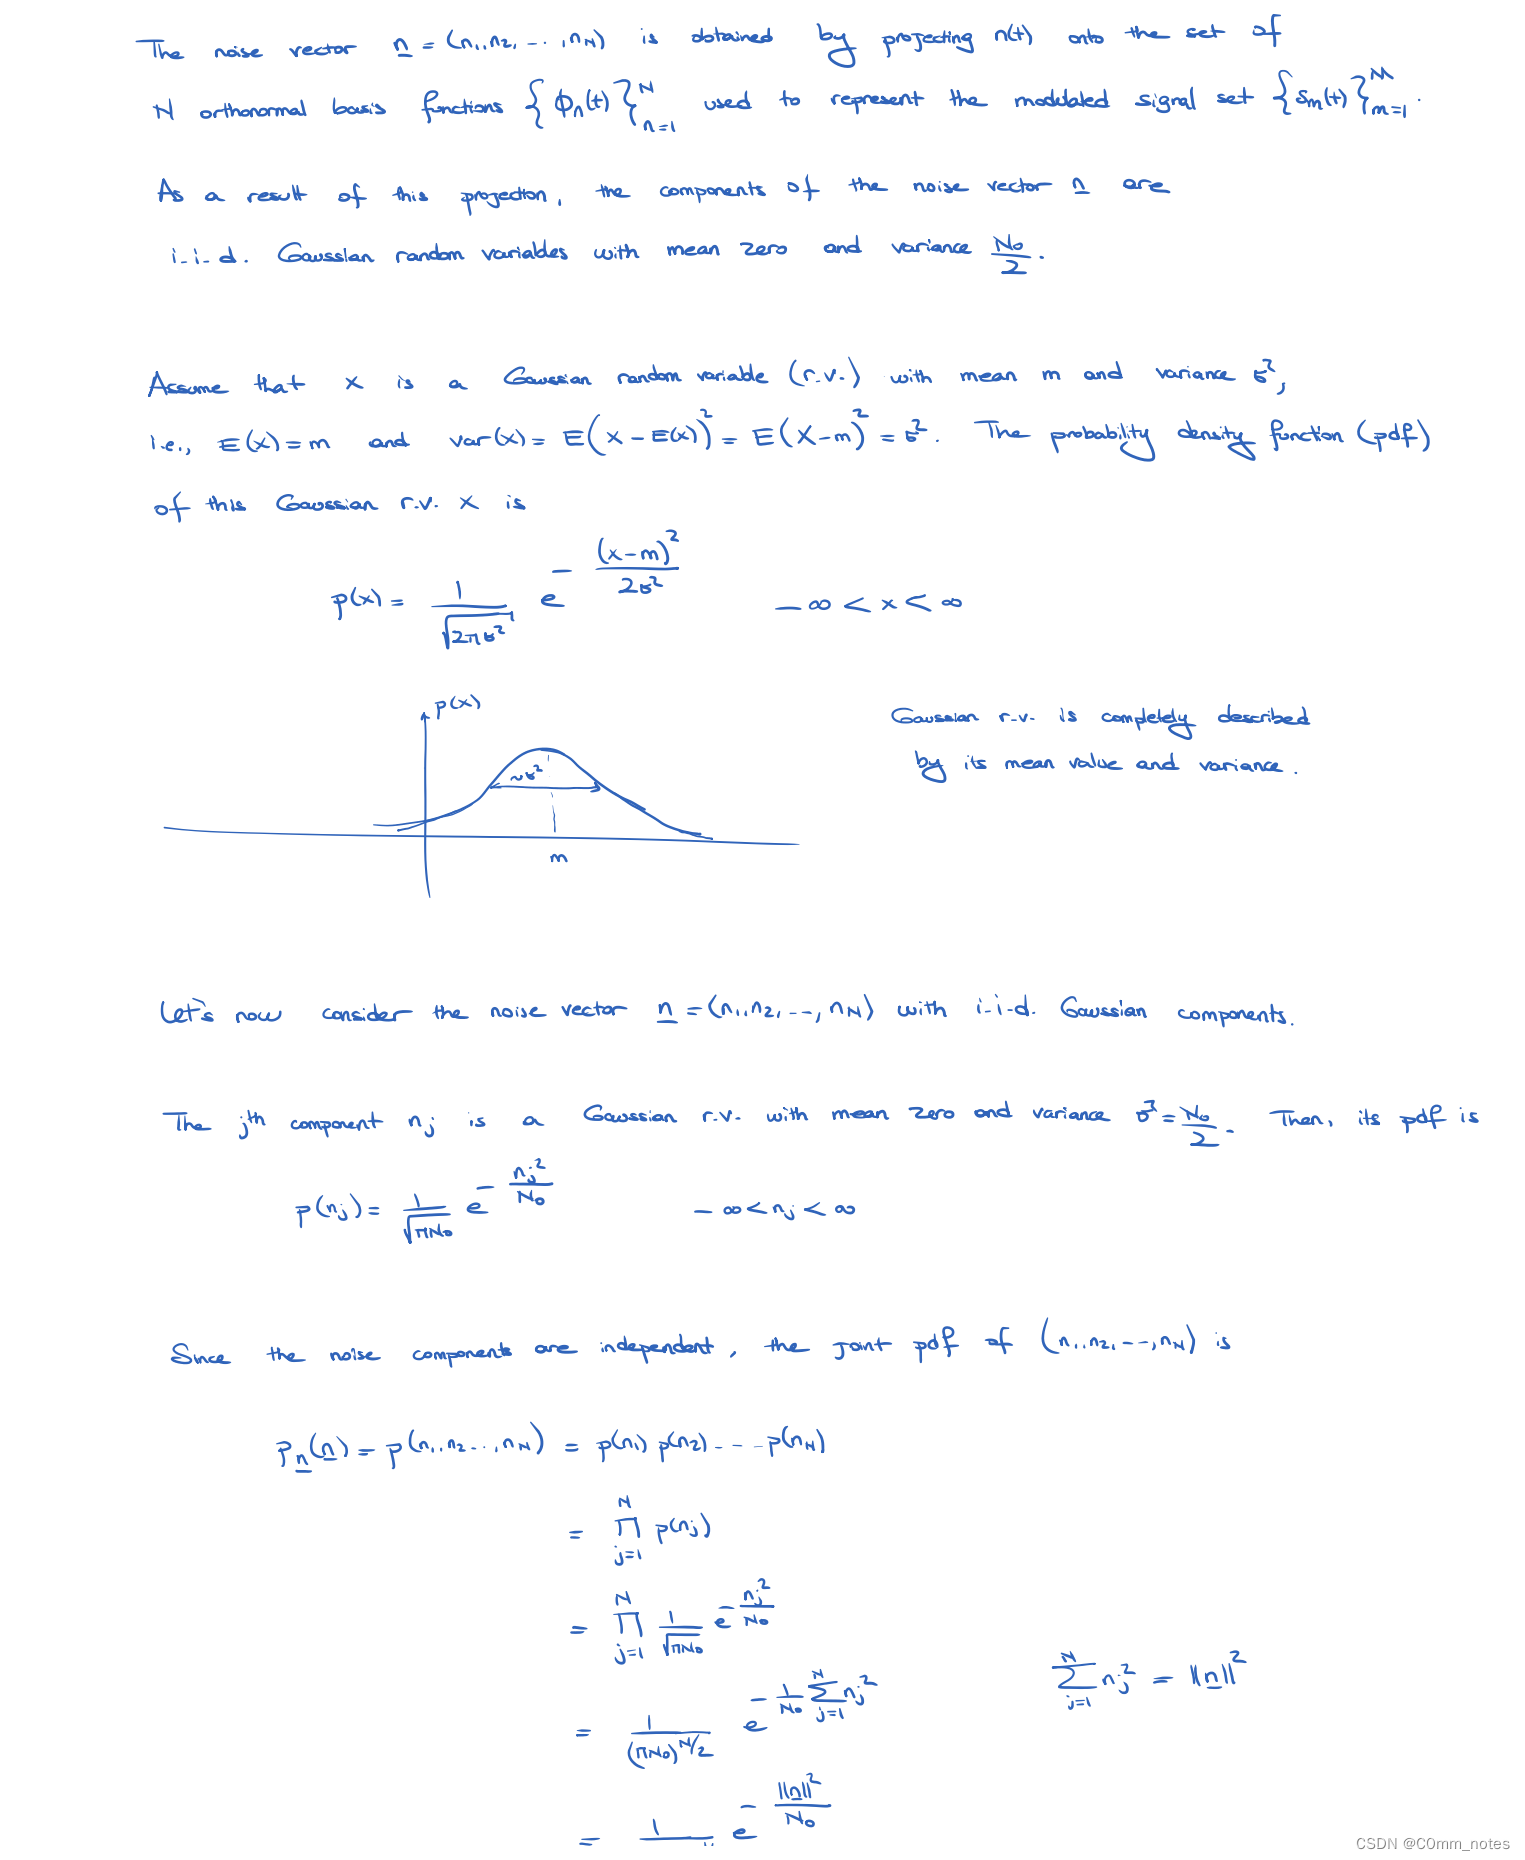 The noise vector n = (n1, n2, -.., nN) is obtained by projecting n(t) onto the set of
N orthonormal basis functions {ϕn(t)}_{n=1}^{N} used to represent the modulated signal set {sm(t)}_{m=1}^{M}.
As a result of this projection, the components of the noise vector n are
i.i.d. Gaussian random variables with mean zero and variance N0/2.
Assume that X is a Gaussian random variable (r.v.) with mean m and variance σ²,
i.e., E(X) = m and var(X) = E(X - E(X))² = E(X-m)² = σ². The probability density function (pdf)
of this Gaussian r.v. X is
p(x) = 1/√(2πσ²) e^{-(x-m)²/2σ²} -∞ < x < ∞
p(x)
Gaussian r.v. is completely described
~σ²
by its mean value and variance.
m
Let's now consider the noise vector n = (n1, n2, --, nN) with i.i.d. Gaussian components.
The jth component nj is a Gaussian r.v. with mean zero and variance σ² = N0/2. Then, its pdf is
p(nj) = 1/√(πN0) e^{-nj²/N0} -∞ < nj < ∞
Since the noise components are independent, the joint pdf of (n1, n2, --, nN) is
p_n(n) = p(n1, n2 .., nN) = p(n1) p(n2) - - - p(nN)
= ∏_{j=1}^{N} p(nj)
= ∏_{j=1}^{N} 1/√(πN0) e^{-nj²/N0}
= 1/(πN0)^{N/2} e^{-1/N0 ∑_{j=1}^{N} nj²} ∑_{j=1}^{N} nj² = ||n||²
= 1/ e^{-||n||²/N0}
CSDN @C0mm_notes